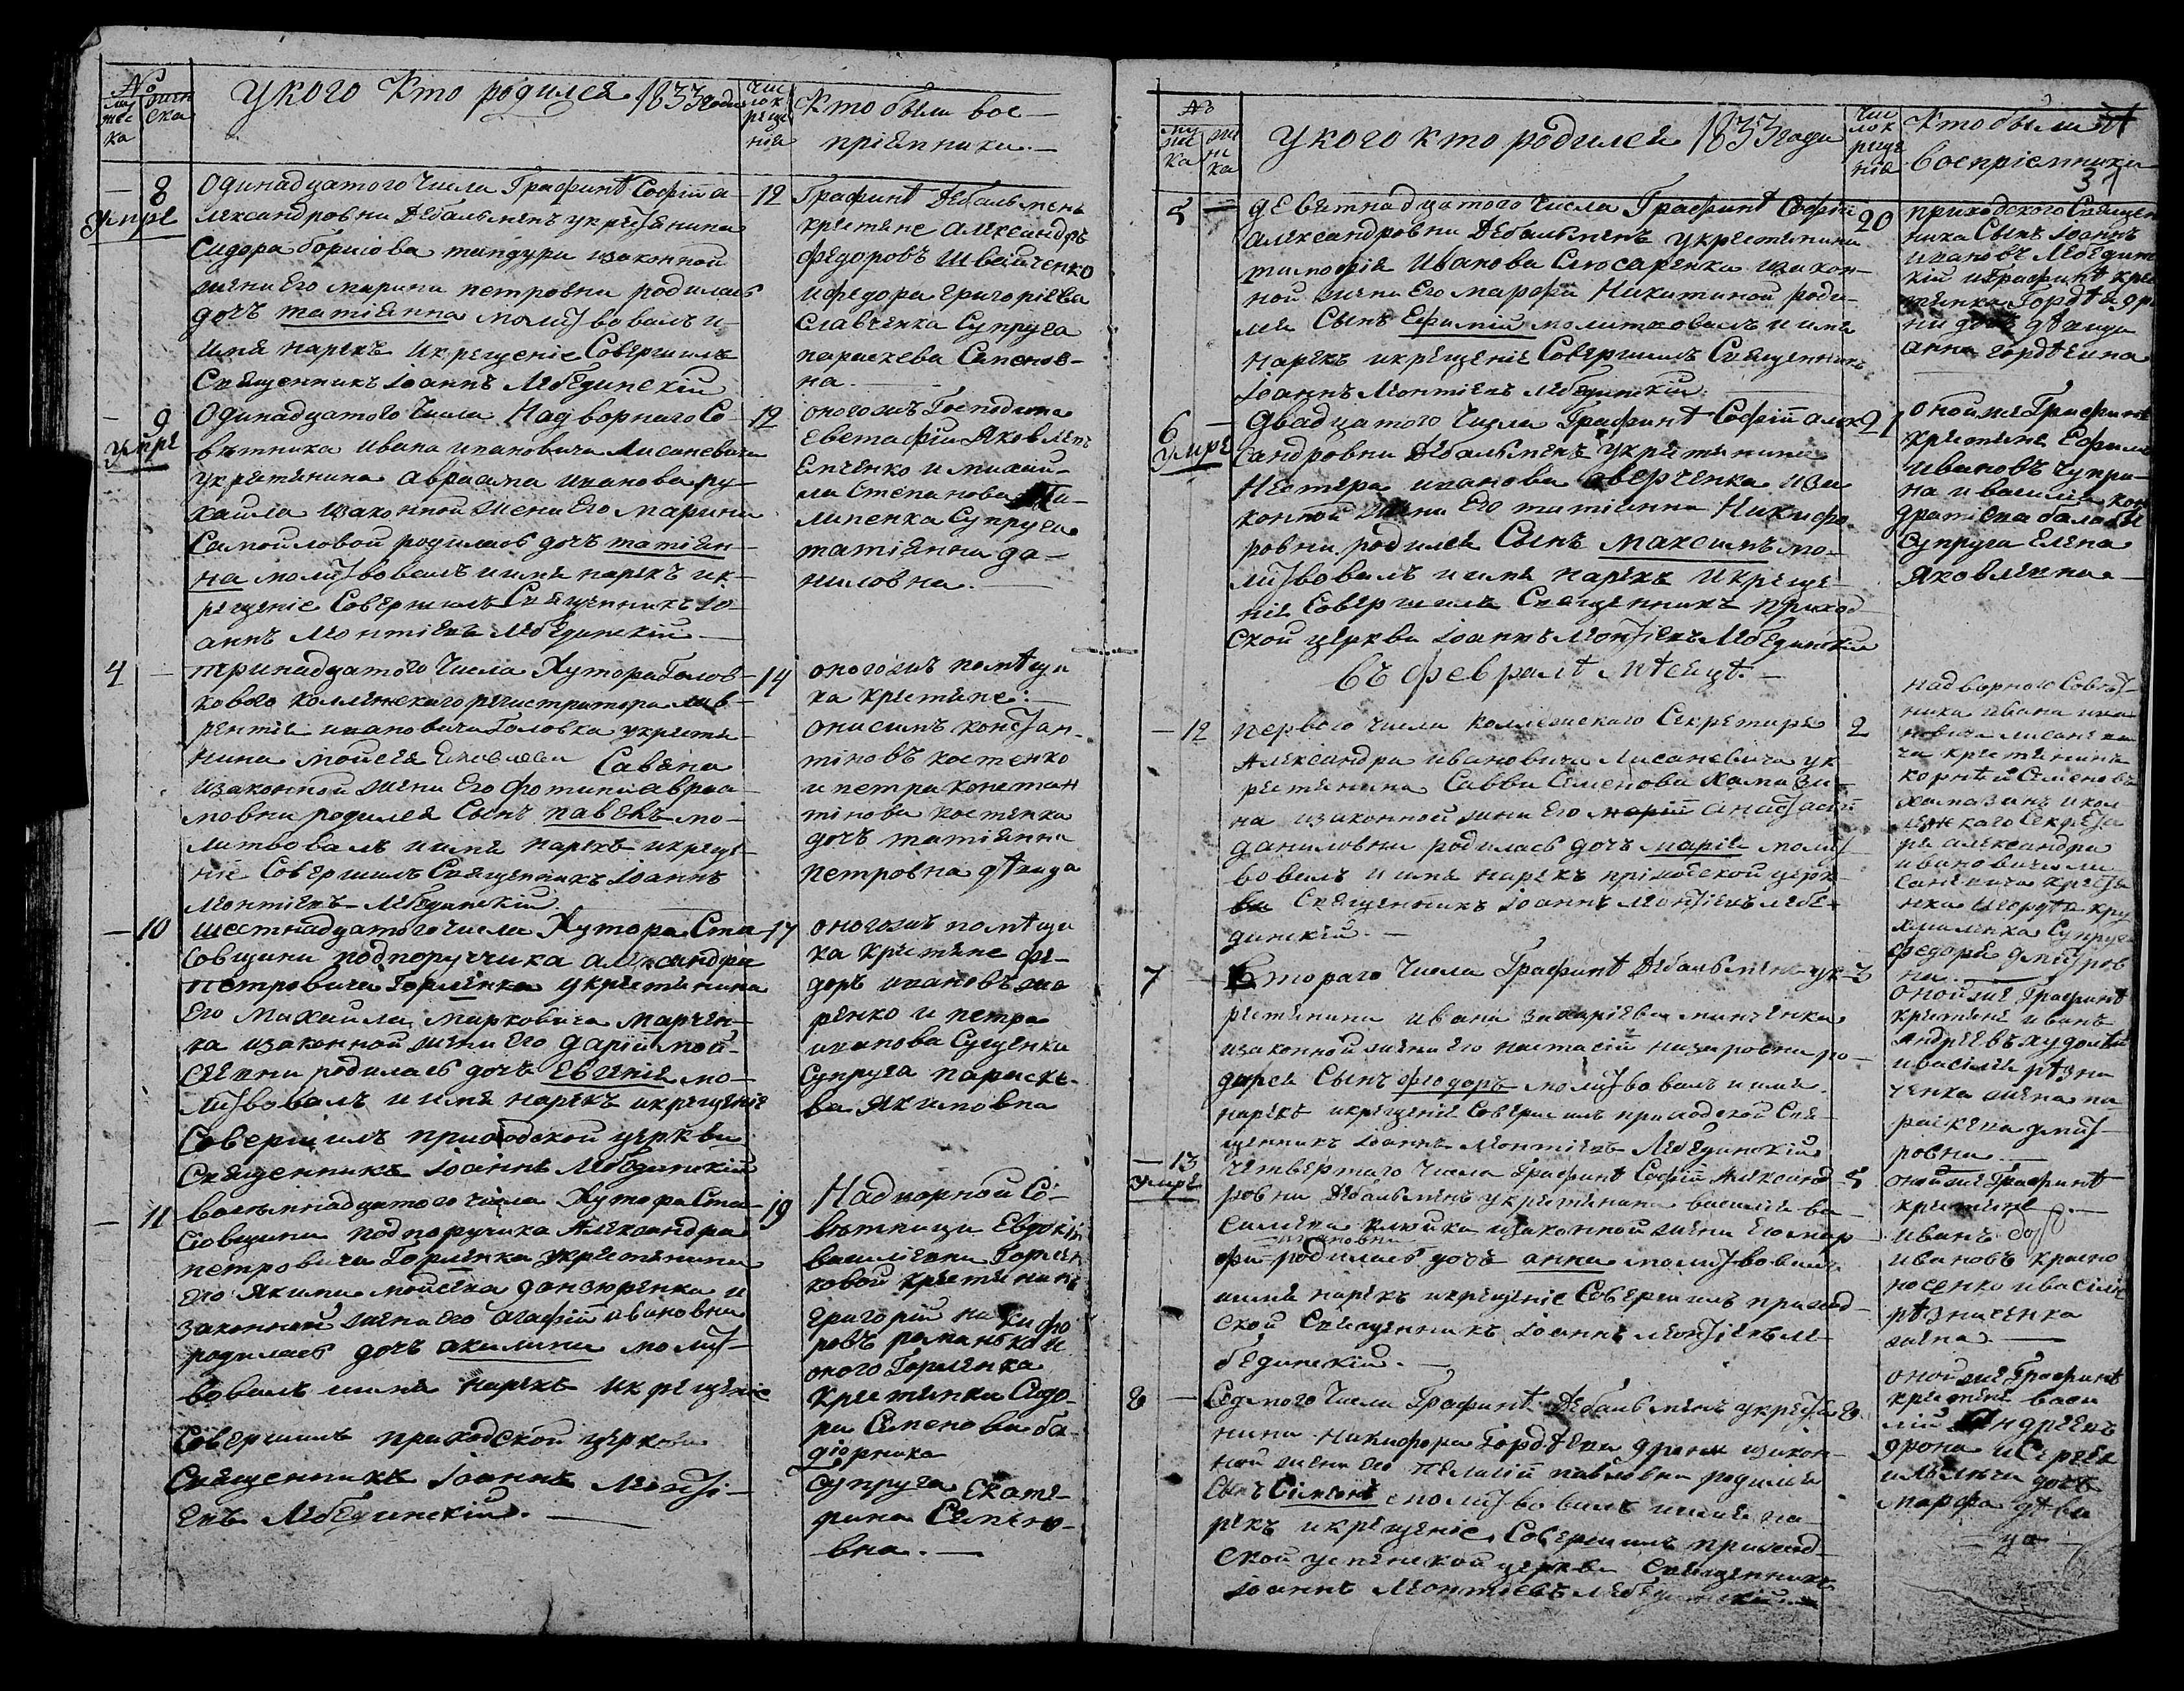 №
муж
ска
женска
У кого кто родился 1833 года
Чис
ло к
реще
нія
Кто были вос-
пріемники.
— 8
умре
Одинадцатого числа Графинѣ Софіи а-
лександровни Дебальменъ у крестянина
Сидора борисова тандури изаконной
жени Его марини петровни родилась
дочъ татіянна молитвовалъ и
имя нарекъ икрещеніе Совершилъ
Священникъ Іоаннъ Лебединскій
12
Графинѣ Дебальменъ
крестяне александръ
федоровъ Швайченко
ифедора григоріева
Славченка Супруга
параскева Семенов-
на.
— 9
умре
Одинадцатого числа Надворнаго Со-
вѣтника Ивана ивановича Лисаневича
укрестянина авраама иванова ру-
изаконной жени Его марини
Самойловой родилась дочъ татіян-
на молитвовалъ иимя нарекъ ик-
рещеніе Совершилъ Священникъ Іо-
аннъ Леонтіевъ Лебединскій
12
оногожъ Господина
Евстафій Яковлевъ
Енченко и михай-
ла Степанова
липенка Супруга
татіянна да-
ниловна.
4 —
тринадцатого числа Хутора Голов-
кового коллежскаго регистратора лав-
рентія ивановича Головка укрестя-
нина мойсея Савина
изаконной жени Его фотини авраа-
мовни родился Сынъ павелъ мо-
литвовалъ иимя нарекъ икреще-
ніе Совершилъ Священникъ Іоаннъ
Леонтіевъ Лебединскій
14
оногожъ помѣщи
ка крестяне:
онисимъ констан-
тіновъ костенко
и петра констан
тінова костенка
дочъ татіянна
петровна дѣвица
— 10
шестнадцатого числа Хутора Ста-
совщини подпоручика александра
петровича Горленка укрестянина
Его михаила марковича марчен-
ка изаконной жени его даріи мой-
сѣевни родилась дочъ Евгенія мо-
литвовалъ иимя нарекъ икрещеніе
Совершилъ приходской церкви
Священникъ Іоаннъ Лебединскій
17
оногожъ помѣщи
ка крестяне фе-
доръ ивановъ
ренко и петра
иванова Сущенка
Супруга параске-
ва Якимовна
— 11
восемнадцатого числа Хутора Ста-
совщини подпоручика Александра
петровича Горленка укрестянина
его Якима мойсѣева данзюренка и
законной жени его агафіи ивановни
родилась дочъ акилина молит-
вовалъ иимя нарекъ икрещеніе
Совершилъ приходской церкви
Священникъ Іоаннъ Леонті-
евъ Лебединскій.
19
Надворной Со-
вѣтници Евдокіи
василіевни Горлен
ковой крестянинъ
григорій никифо
ровъ романько и
оного Горленка
крестянки Сидо-
ра Семенова ба-
Супруга Екате-
рина Семено-
вна.
№
муж
ска
же
нс
ка
У кого кто родился 1833 года
Чис
ло к
реще
нія
Кто были
воспріемники
31
5 —
девятнадцатого числа Графинѣ Софіи
александровни Дебальменъ укрестянина
тимофея Иванова Слюсаренка изакон-
ной жени Его марфи Никитиной роди-
лся Сынъ Ефимій молитвовалъ и имя
нарекъ икрещеніе Совершилъ Священникъ
Іоаннъ Леонтіевъ Лебединскій
20
приходского Священ
ника Сынъ Іоаннъ
ивановъ Лебедин
кій играфинѣ кре
стянка Гордѣя дро
ни дочъ дѣвица
анна гордѣевна
6 —
умре
Двадцатого числа Графинѣ Софіи алек
Сандровни Дебальменъ укрестянина
Нестера иванова аверченка иза
конной жени Его татіянни Никифо-
ровни родился Сынъ максимъ мо-
литвовалъ иимя нарекъ икреще-
ніе Совершилъ Священникъ приход
ской церкви Іоаннъ Леонтіевъ Лебединскій
21
онойже Графинѣ
крестяне Ефимъ
Ивановъ Чупри-
на ивасилія кон
дратіева
Супруга Елена
Яковлевна
Въ февралѣ мѣсяцѣ.
— 12
первого числа коллежскаго Секретаря
Александра ивановича Лисаневича ук-
рестянина Савви Семенова Хамази
на изаконной жени его анастасіи
даниловни родилась дочъ марія молит
вовалъ и имя нарекъ приходской церк
ви Священникъ Іоаннъ Леонтіевъ Лебе-
динскій.
2
Надворного Совѣт
ника ивана ива
новича лисаневи
ча крестянинъ
корнѣй Семеновъ
хамазинъ икол
лежскаго Секрета
ря александра
ивановича ли
саневича крестя
нка
Супруга
федора дмитров
на
7 —
Второго числа Графинѣ Дебальменъ ук-
рестянина ивана захаріева минченка
изаконной жени его настасіи назаровни ро-
дился Сынъ феодоръ молитвовалъ иимя
нарекъ икрещеніе Совершилъ приходской Свя-
щенникъ Іоаннъ Леонтіевъ Лебединскій
3
онойже Графинѣ
крестяне иванъ
андреевъ худолѣй
ивасилія рѣзни
ченка жена па
раскева дмит
ровна
— 13
умре
четвертаго числа Графинѣ Софіи Александ
ровни Дебальменъ укрестянина василія ва-
силіева клюйка изаконной жени его мар
ивановни
фи родилась дочъ анна молитвовалъ
иимя нарекъ икрещеніе Совершилъ приход-
ской Священникъ Іоаннъ Леонтіевъ Ле-
бединскій.
5
онойже Графинѣ
крестяне
иванъ
Ивановъ красно
носенко ивасілія
рѣзниченка
жена
8 —
Седмого числа Графинѣ Дебальменъ укрестя
нина никифора Гордѣева дрони изакон-
ной жени его Пелагіи павловни родился
Сынъ Симеонъ молитвовалъ иимя на-
рекъ икрещеніе Совершилъ приход-
ской успенской церкви Священникъ
Іоаннъ Леонтіевъ Лебединскій.
8
онойже Графинѣ
крестяне васи
лій Андреевъ
дрона иСергѣя
дочъ
марфа дѣви
ца